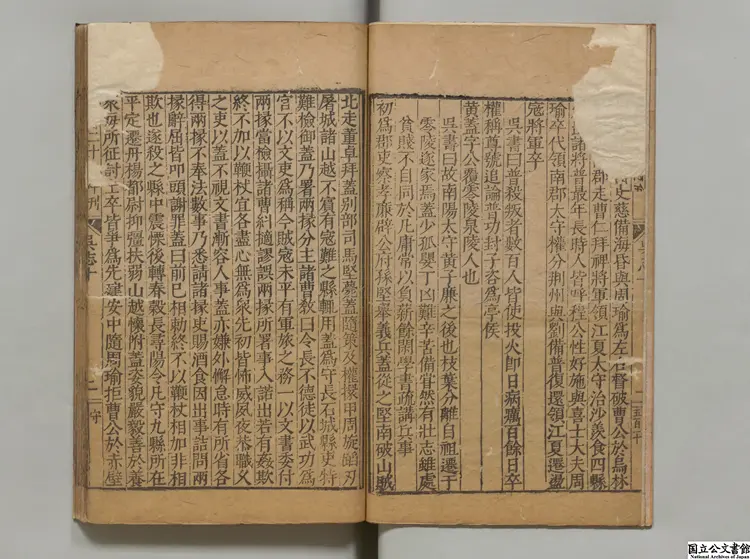 史慈備海昏與周瑜爲左右督破曹公於烏林
郡走曹仁拜裨將軍領江夏太守治沙羨食四縣
諸將普最年長時人皆呼程公性好施與喜士大夫周
瑜卒代領南郡太守權分荆州與劉備普復還領江夏遷盪
寇將軍卒
吳書曰普殺叛者數百人皆使投火即日病癘百餘日卒
權稱尊號追論普功封子咨爲亭侯
黃蓋字公覆零陵泉陵人也
吳書曰故南陽太守黃子廉之後也枝葉分離自祖遷于
零陵遂家焉蓋少孤嬰丁凶難辛苦備甞然有壯志雖處
貧賤不自同於凡庸常以負薪餘閑學書疏講兵事
初爲郡吏察孝廉辟公府孫堅舉義兵蓋從之堅南破山賊
北走董卓拜蓋別部司馬堅薨蓋隨策及權擐甲周旋蹈刃
屠城諸山越不賔有寇難之縣輒用蓋爲守長石城縣吏特
難檢御蓋乃署兩掾分主諸曹敎曰令長不德徒以武功爲
官不以文吏爲稱今賊寇未平有軍旅之務一以文書委付
兩掾當檢攝諸曹糾擿謬誤兩掾所署事入諾出若有姦欺
終不加以鞭杖宜各盡心無爲衆先初皆怖威夙夜恭職乆
之吏以蓋不視文書漸容人事蓋亦嫌外懈怠時有所省各
得兩掾不奉法數事乃悉請諸掾吏賜酒食因出事詰問兩
掾辭屈皆叩頭謝罪蓋曰前已相勑終不以鞭杖相加非相
欺也遂殺之縣中震慄後轉春穀長尋陽令凡守九縣所在
平定遷丹楊都尉抑彊扶弱山越懷附蓋姿貌嚴毅善於養
衆毎所征討士卒皆爭爲先建安中隨周瑜拒曹公於赤壁
吳志十
守
国立公文書館
National Archives of Japan